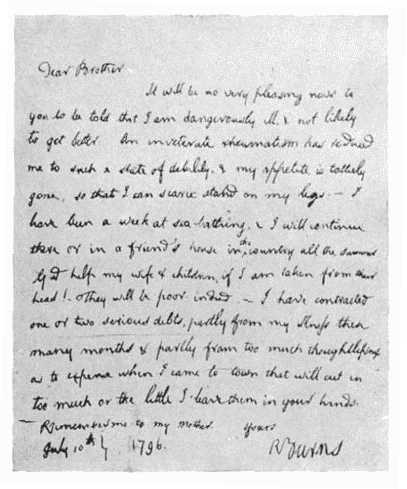 Dear Brother
It will be no very pleasing news to
you to be told that I am dangerously ill & not likely
to get better. An inveterate rheumatism has reduced
me to such a state of debility, & my appetite is totally
gone, so that I can scarce stand on my legs. — I
have been a week at sea-bathing, & I will continue
there or in a friend's house in the country all the summer
God help my wife & children, if I am taken from their
head! - They will be poor indeed. — I have contracted
one or two serious debts, partly from my illness these
many months & partly from too much thoughtlessness
as to expense when I came to town that will cut in
too much on the little I leave them in your hands.
Remember me to my mother. Yours
July 10th 1796. RBurns